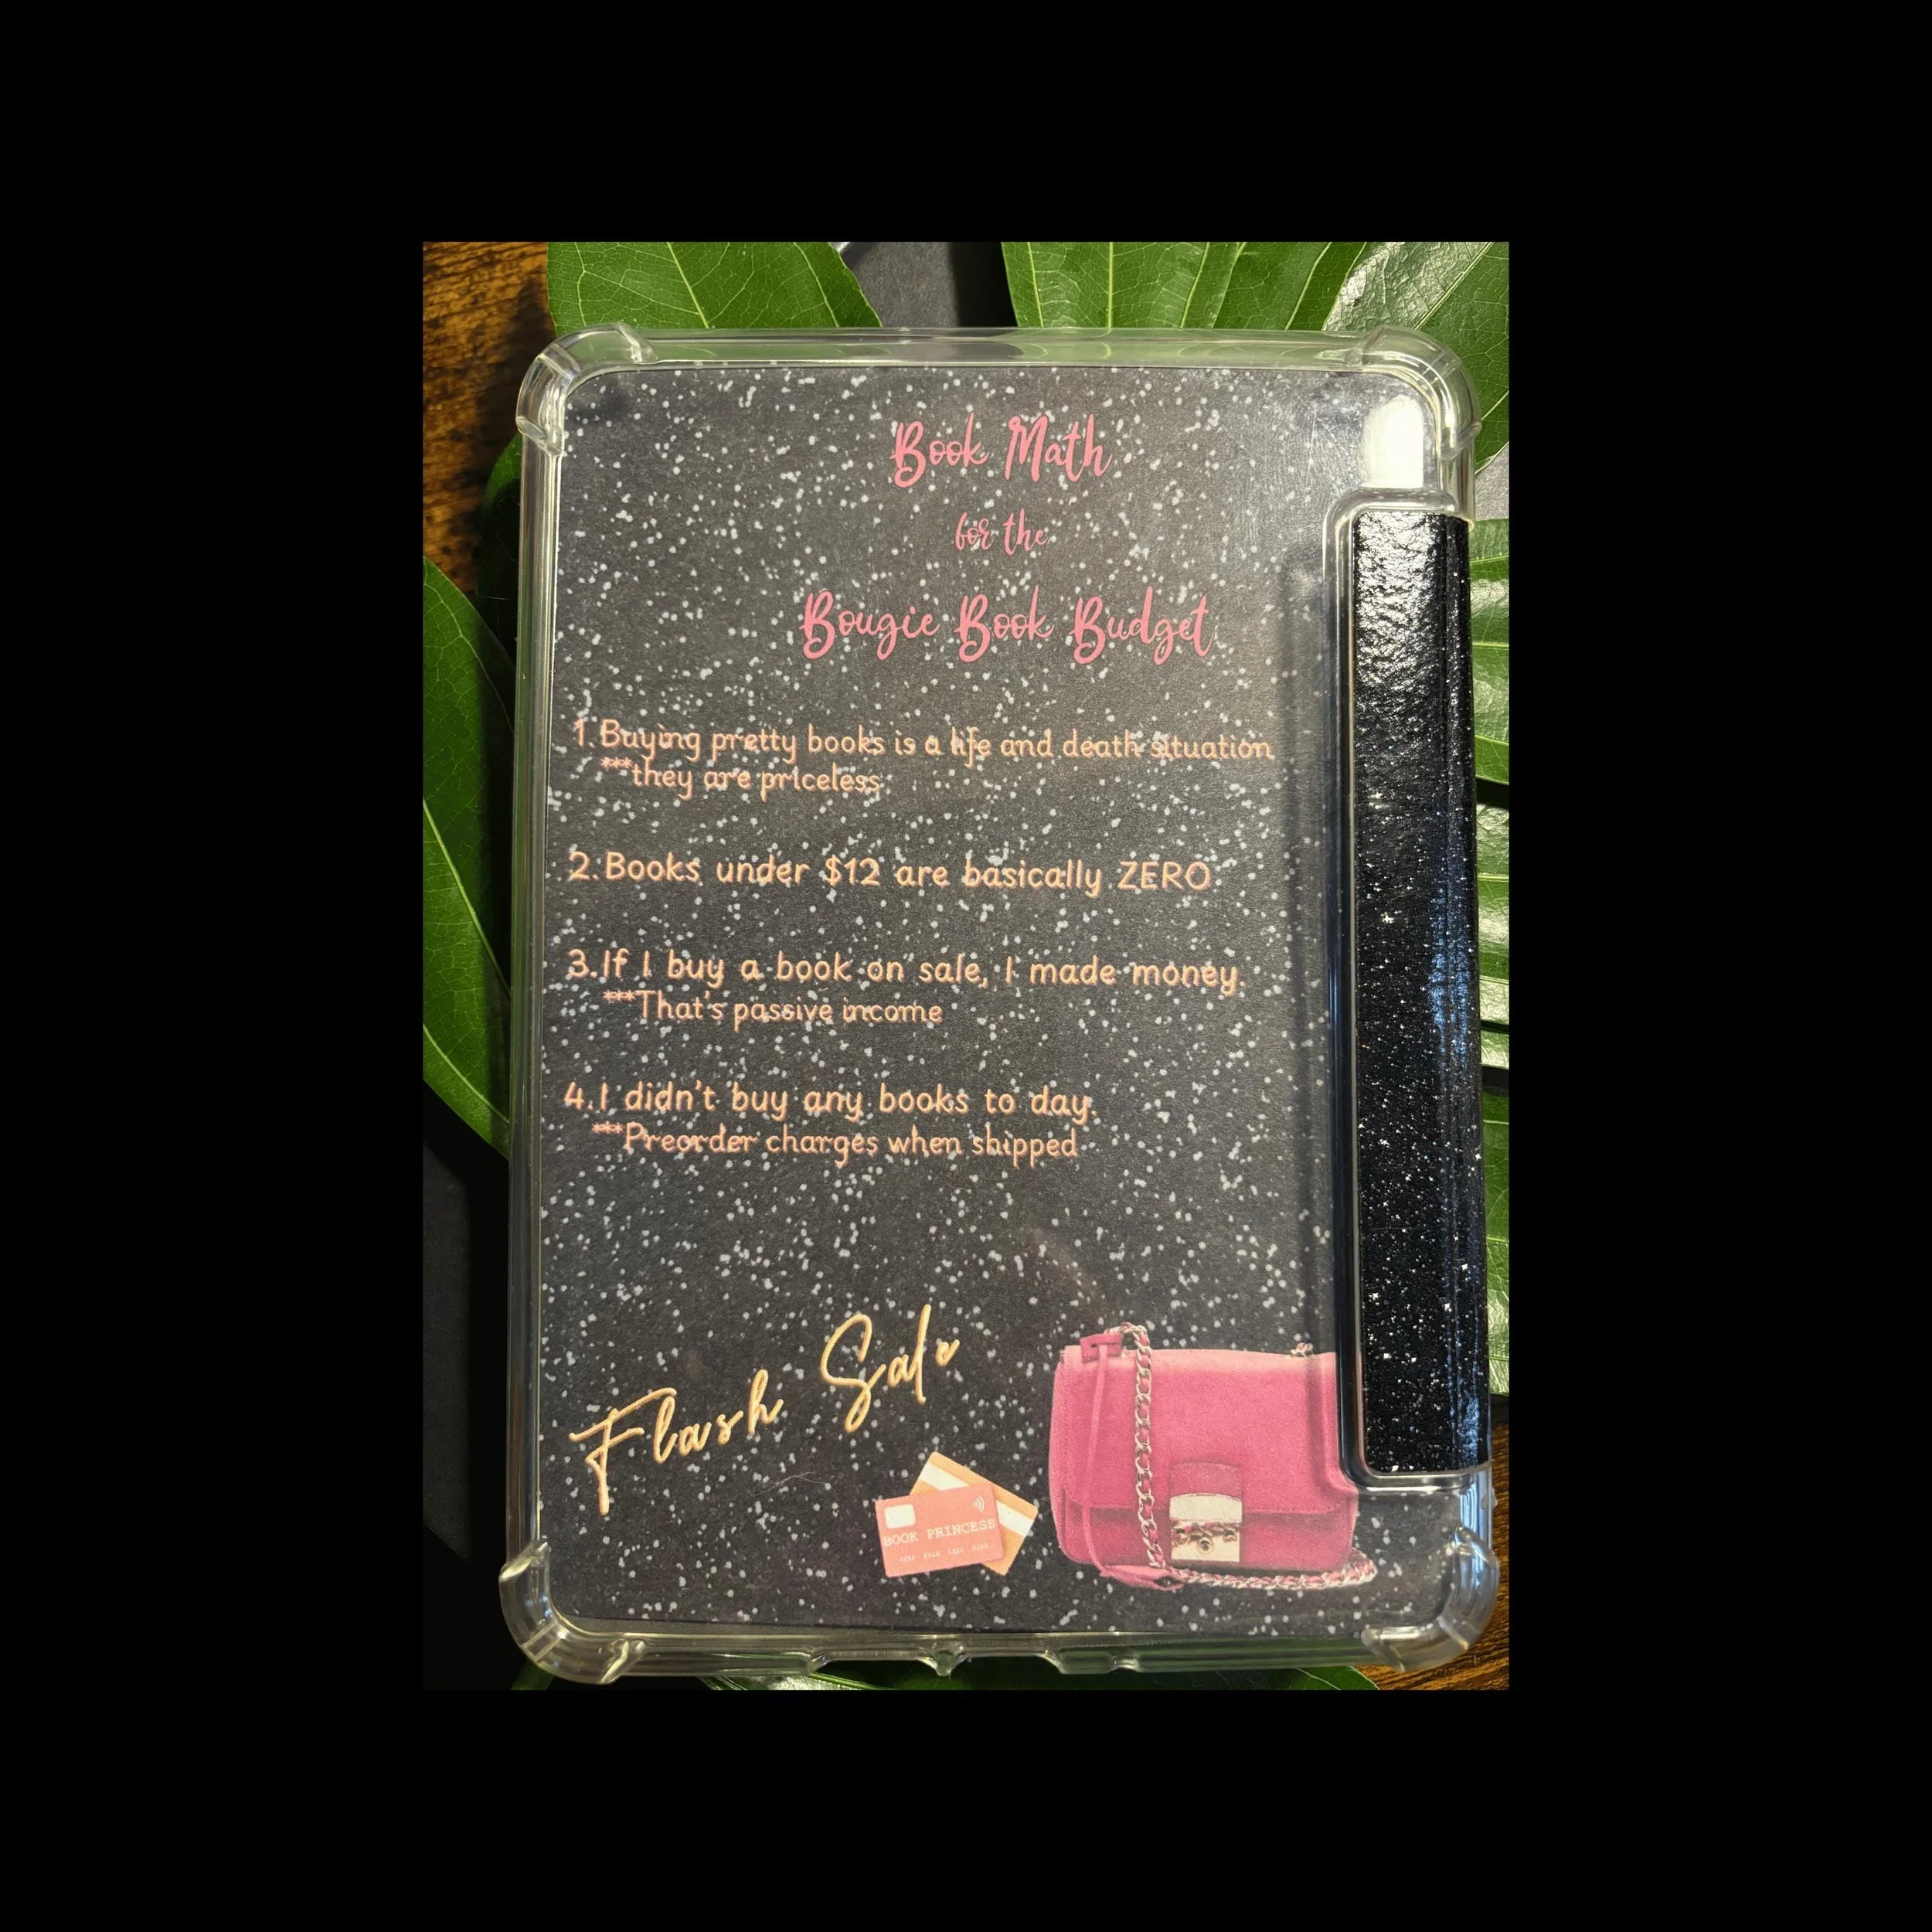 Book Math
for the
Bougie Book Budget
1. Buying pretty books is a life and death situation
***they are priceless
2. Books under $12 are basically ZERO
3. If I buy a book on sale, I made money.
***That's passive income
4. I didn't buy any books to day.
***Preorder charges when shipped
Flash Sale
BOOK PRINCESS